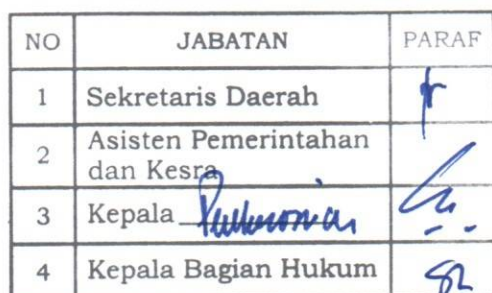 NO JABATAN PARAF
1 Sekretaris Daerah
2 Asisten Pemerintahan
dan Kesra
3 Kepala
4 Kepala Bagian Hukum